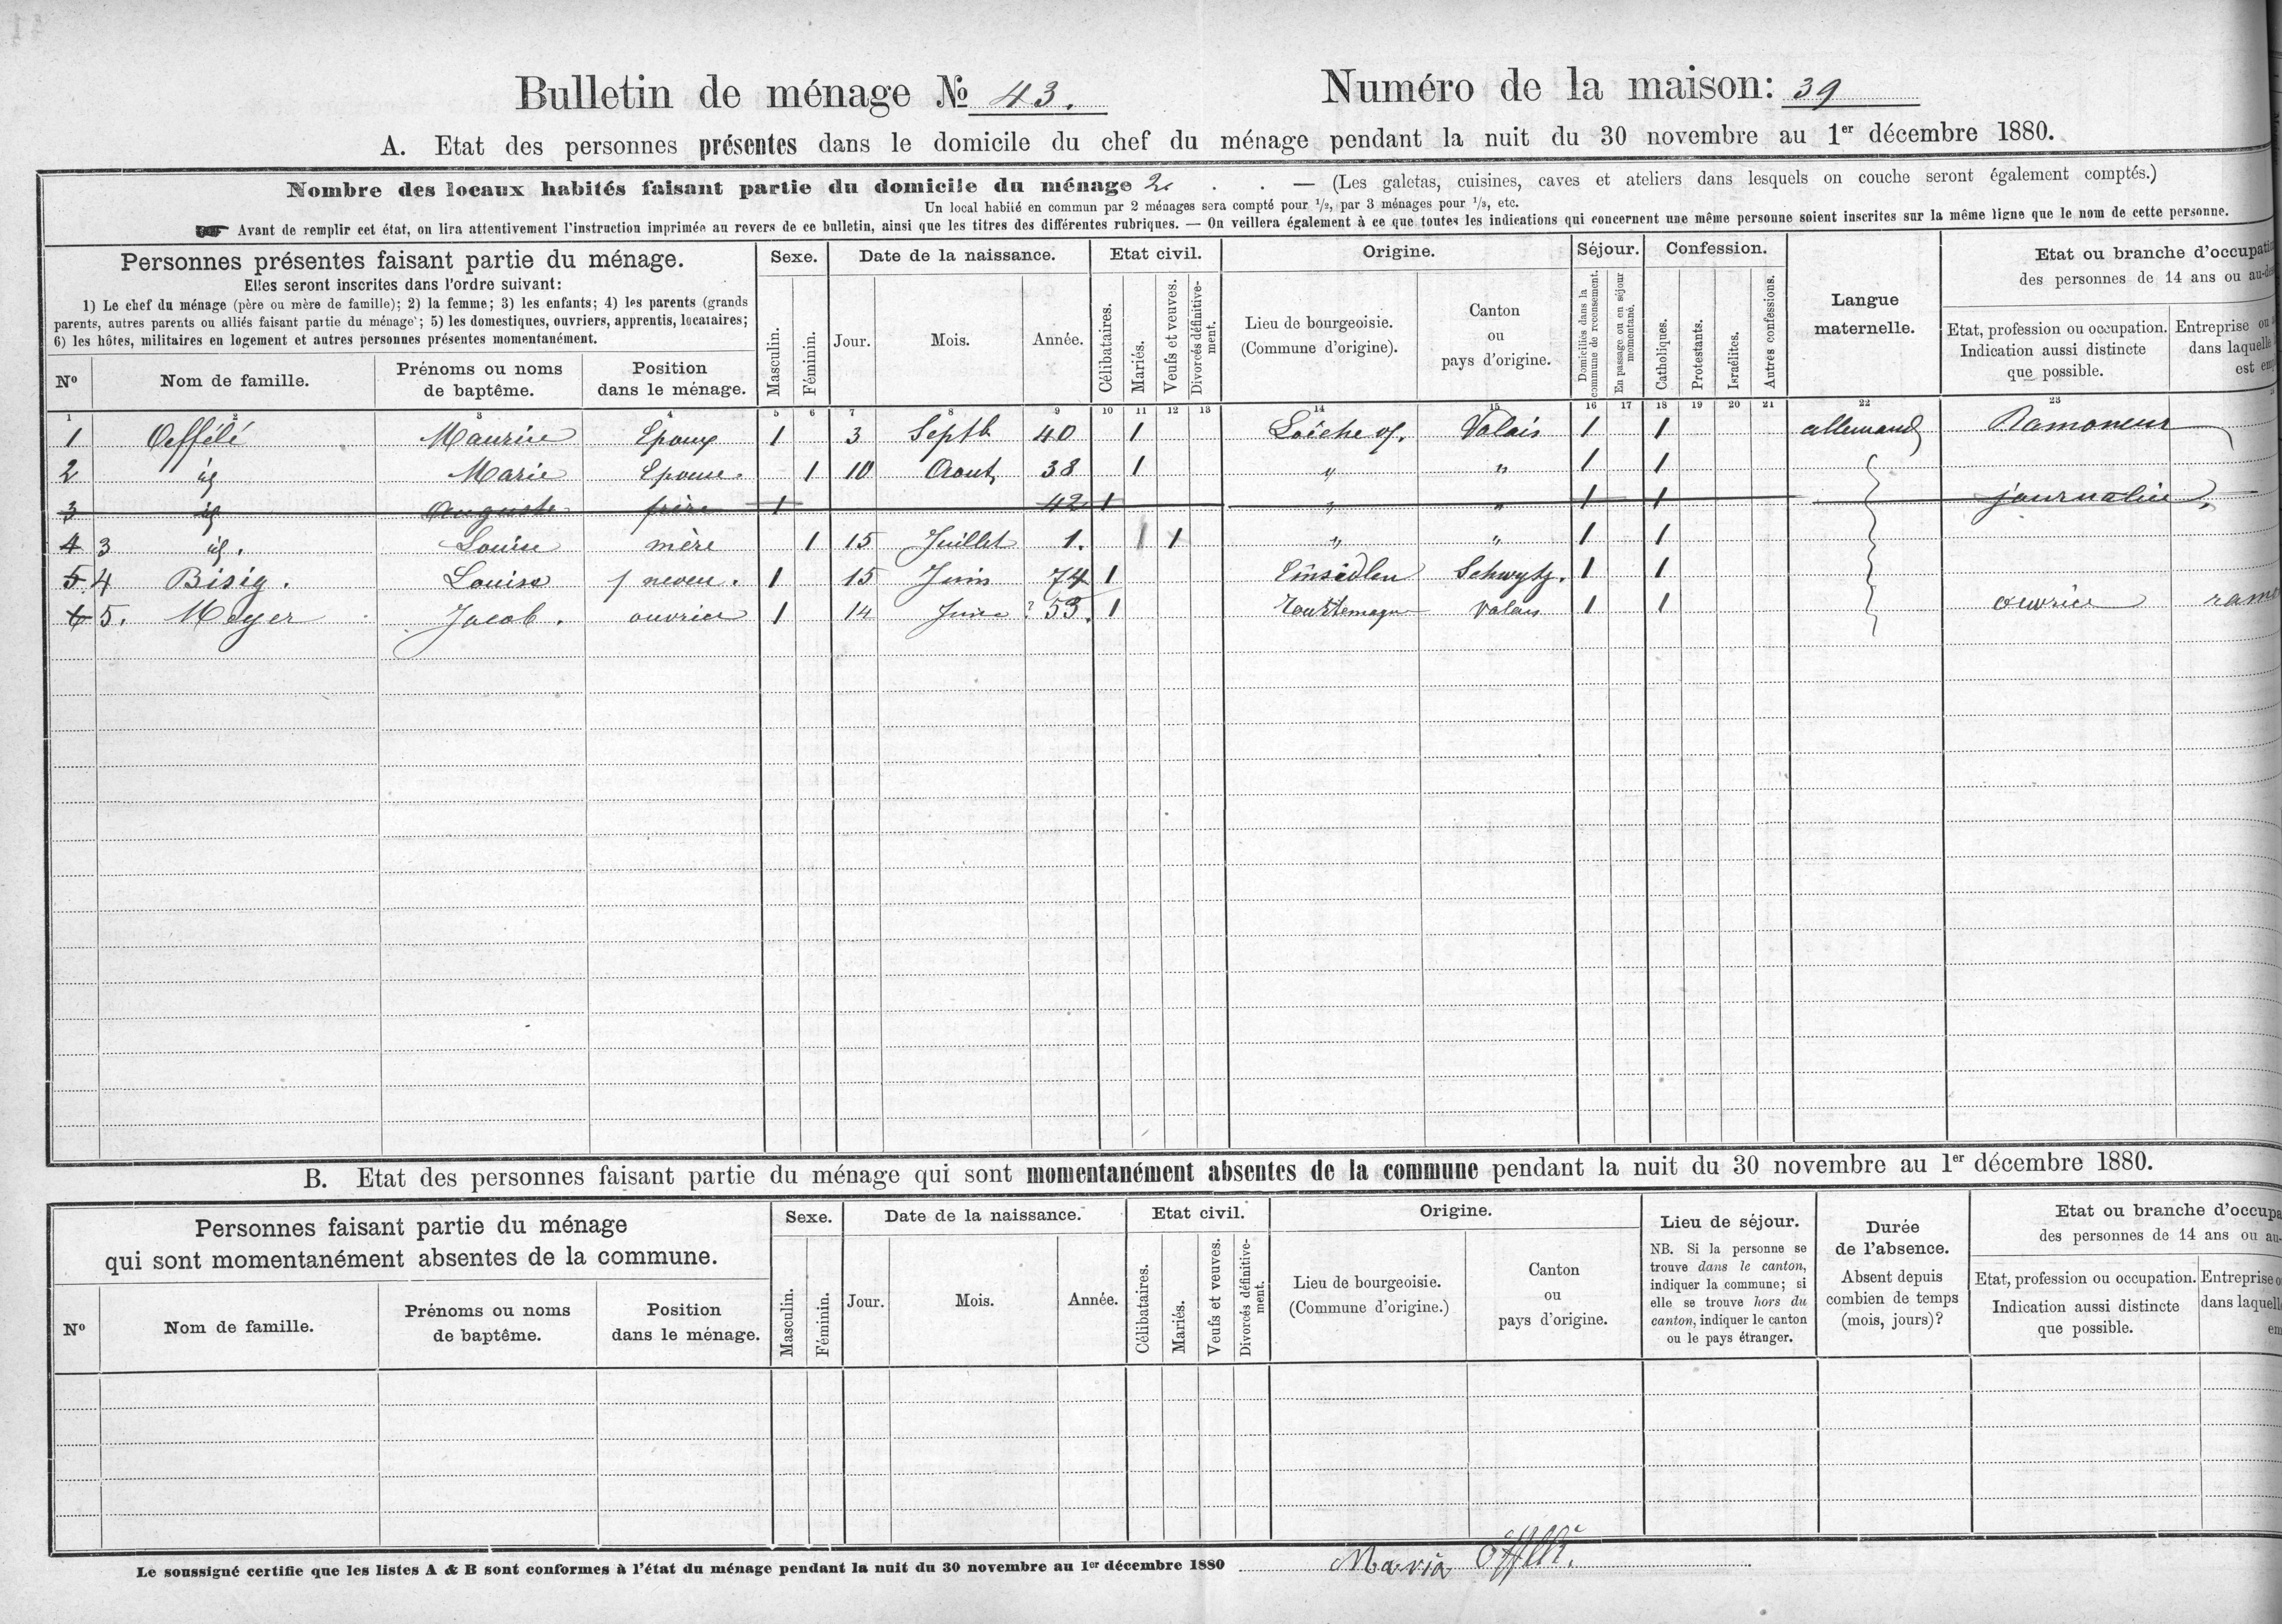 Bulletin de ménage № 43.
Numéro de la maison: 39
A. Etat des personnes présentes dans le domicile du chef du ménage pendant la nuit du 30 novembre au 1er décembre 1880.
Nombre des locaux habités faisant partie du domicile du ménage 2 . . — (Les galetas, cuisines, caves et ateliers dans lesquels on couche seront également comptés.)
Un local habité en commun par 2 ménages sera compté pour 1/2, par 3 ménages pour 1/3, etc.
☛ Avant de remplir cet état, on lira attentivement l'instruction imprimée au revers de ce bulletin, ainsi que les titres des différentes rubriques. — On veillera également à ce que toutes les indications qui concernent une même personne soient inscrites sur la même ligne que le nom de cette personne.
Personnes présentes faisant partie du ménage.
Elles seront inscrites dans l'ordre suivant:
1) Le chef du ménage (père ou mère de famille); 2) la femme; 3) les enfants; 4) les parents (grands
parents, autres parents ou alliés faisant partie du ménage; 5) les domestiques, ouvriers, apprentis, locataires;
6) les hôtes, militaires en logement et autres personnes présentes momentanément.
Nº
Nom de famille.
Prénoms ou noms
de baptême.
Position
dans le ménage.
Sexe.
Masculin.
Féminin.
Date de la naissance.
Jour.
Mois.
Année.
Etat civil.
Célibataires.
Mariés.
Veufs et veuves.
Divorcés définitive-
ment.
Origine.
Lieu de bourgeoisie.
(Commune d'origine).
Canton
ou
pays d'origine.
Séjour.
Domiciliés dans la
commune de recensement.
En passage ou en séjour
momentané.
Confession.
Catholiques.
Protestants.
Israélites.
Autres confessions.
Langue
maternelle.
Etat ou branche d'occupati
des personnes de 14 ans ou au-de
Etat, profession ou occupation.
Indication aussi distincte
que possible.
Entreprise ou
dans laquelle
est em
1 2 3 4 5 6 7 8 9 10 11 12 13 14 15 16 17 18 19 20 21 22 23
1 Oeffélé Maurice Epoux 1 3 Septb 40 1 Loèche Valais 1 1 allemand Ramoneur
2 id Marie Epouse. 1 10 Aout 38 1 " " 1 1
3 id Auguste frère 1 42 1 " " 1 1 journalier
4 3 id. Louise mère 1 15 Juillet 1. 1 1 " " 1 1
5 4 Bisig. Louise neveu. 1 15 Juin 74 1 Einsidlen Schwytz. 1 1
6 5. Meyer Jacob. ouvrier 1 14 Juin ? 53. 1 Tourtemagne Valais 1 1 ouvrier ramo
B. Etat des personnes faisant partie du ménage qui sont momentanément absentes de la commune pendant la nuit du 30 novembre au 1er décembre 1880.
Personnes faisant partie du ménage
qui sont momentanément absentes de la commune.
Nº
Nom de famille.
Prénoms ou noms
de baptême.
Position
dans le ménage.
Sexe.
Masculin.
Féminin.
Date de la naissance.
Jour.
Mois.
Année.
Etat civil.
Célibataires.
Mariés.
Veufs et veuves.
Divorcés définitive-
ment.
Origine.
Lieu de bourgeoisie.
(Commune d'origine.)
Canton
ou
pays d'origine.
Lieu de séjour.
NB. Si la personne se
trouve dans le canton,
indiquer la commune; si
elle se trouve hors du
canton, indiquer le canton
ou le pays étranger.
Durée
de l'absence.
Absent depuis
combien de temps
(mois, jours)?
Etat ou branche d'occupa
des personnes de 14 ans ou au-
Etat, profession ou occupation.
Indication aussi distincte
que possible.
Entreprise o
dans laquell
em
Le soussigné certifie que les listes A & B sont conformes à l'état du ménage pendant la nuit du 30 novembre au 1er décembre 1880 Maria